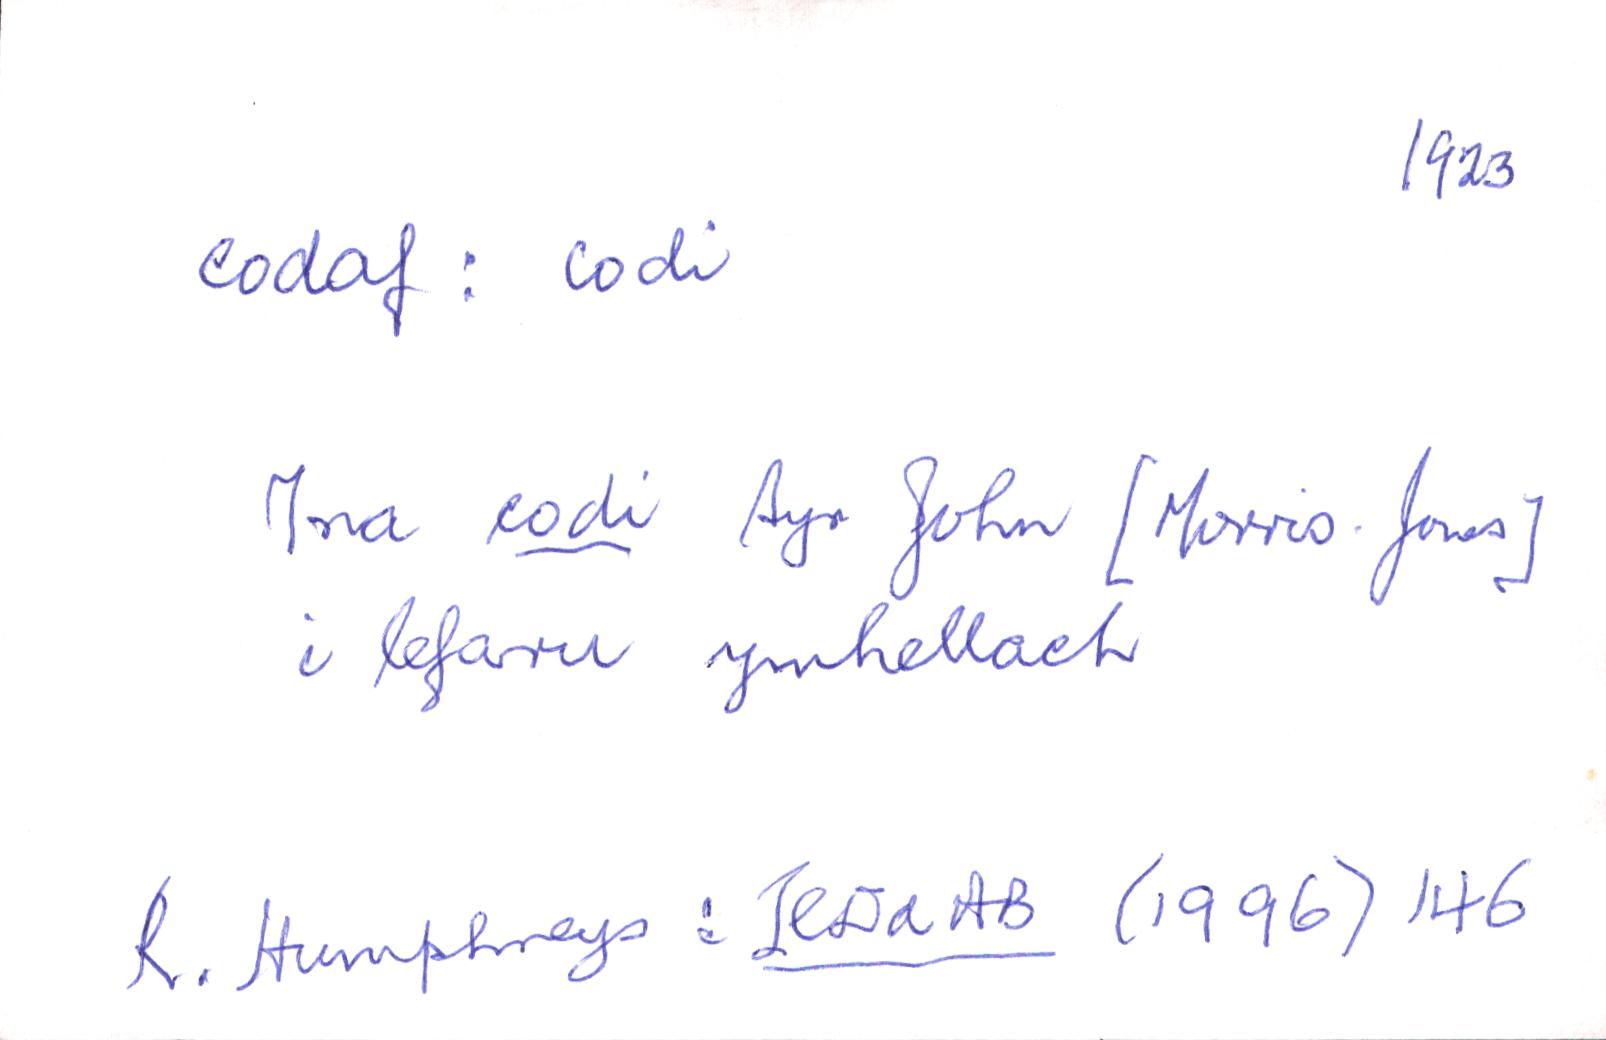 1923
codaf : codi
Yna codi Syr John [Morris-Jones]
i lefaru ymhellach
R. Humphreys : (1996) 146